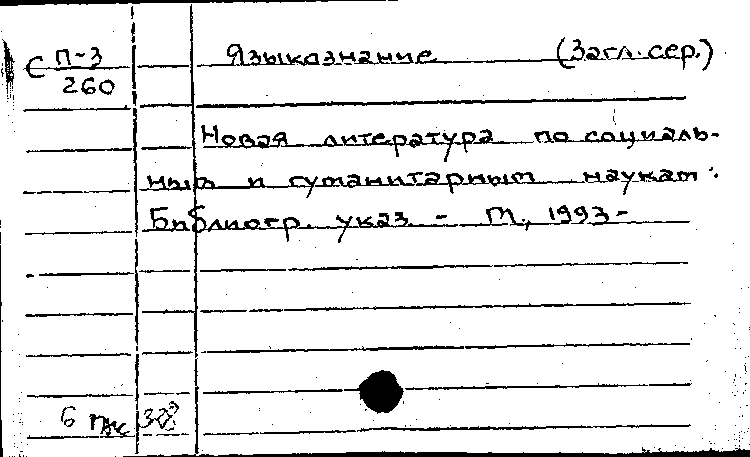 С П-3 Языкознание (Загл. сер.)
260
Новая литература по социаль-
ным и гуманитарным наукам:
Библиогр. указ. - М., 1993-
6